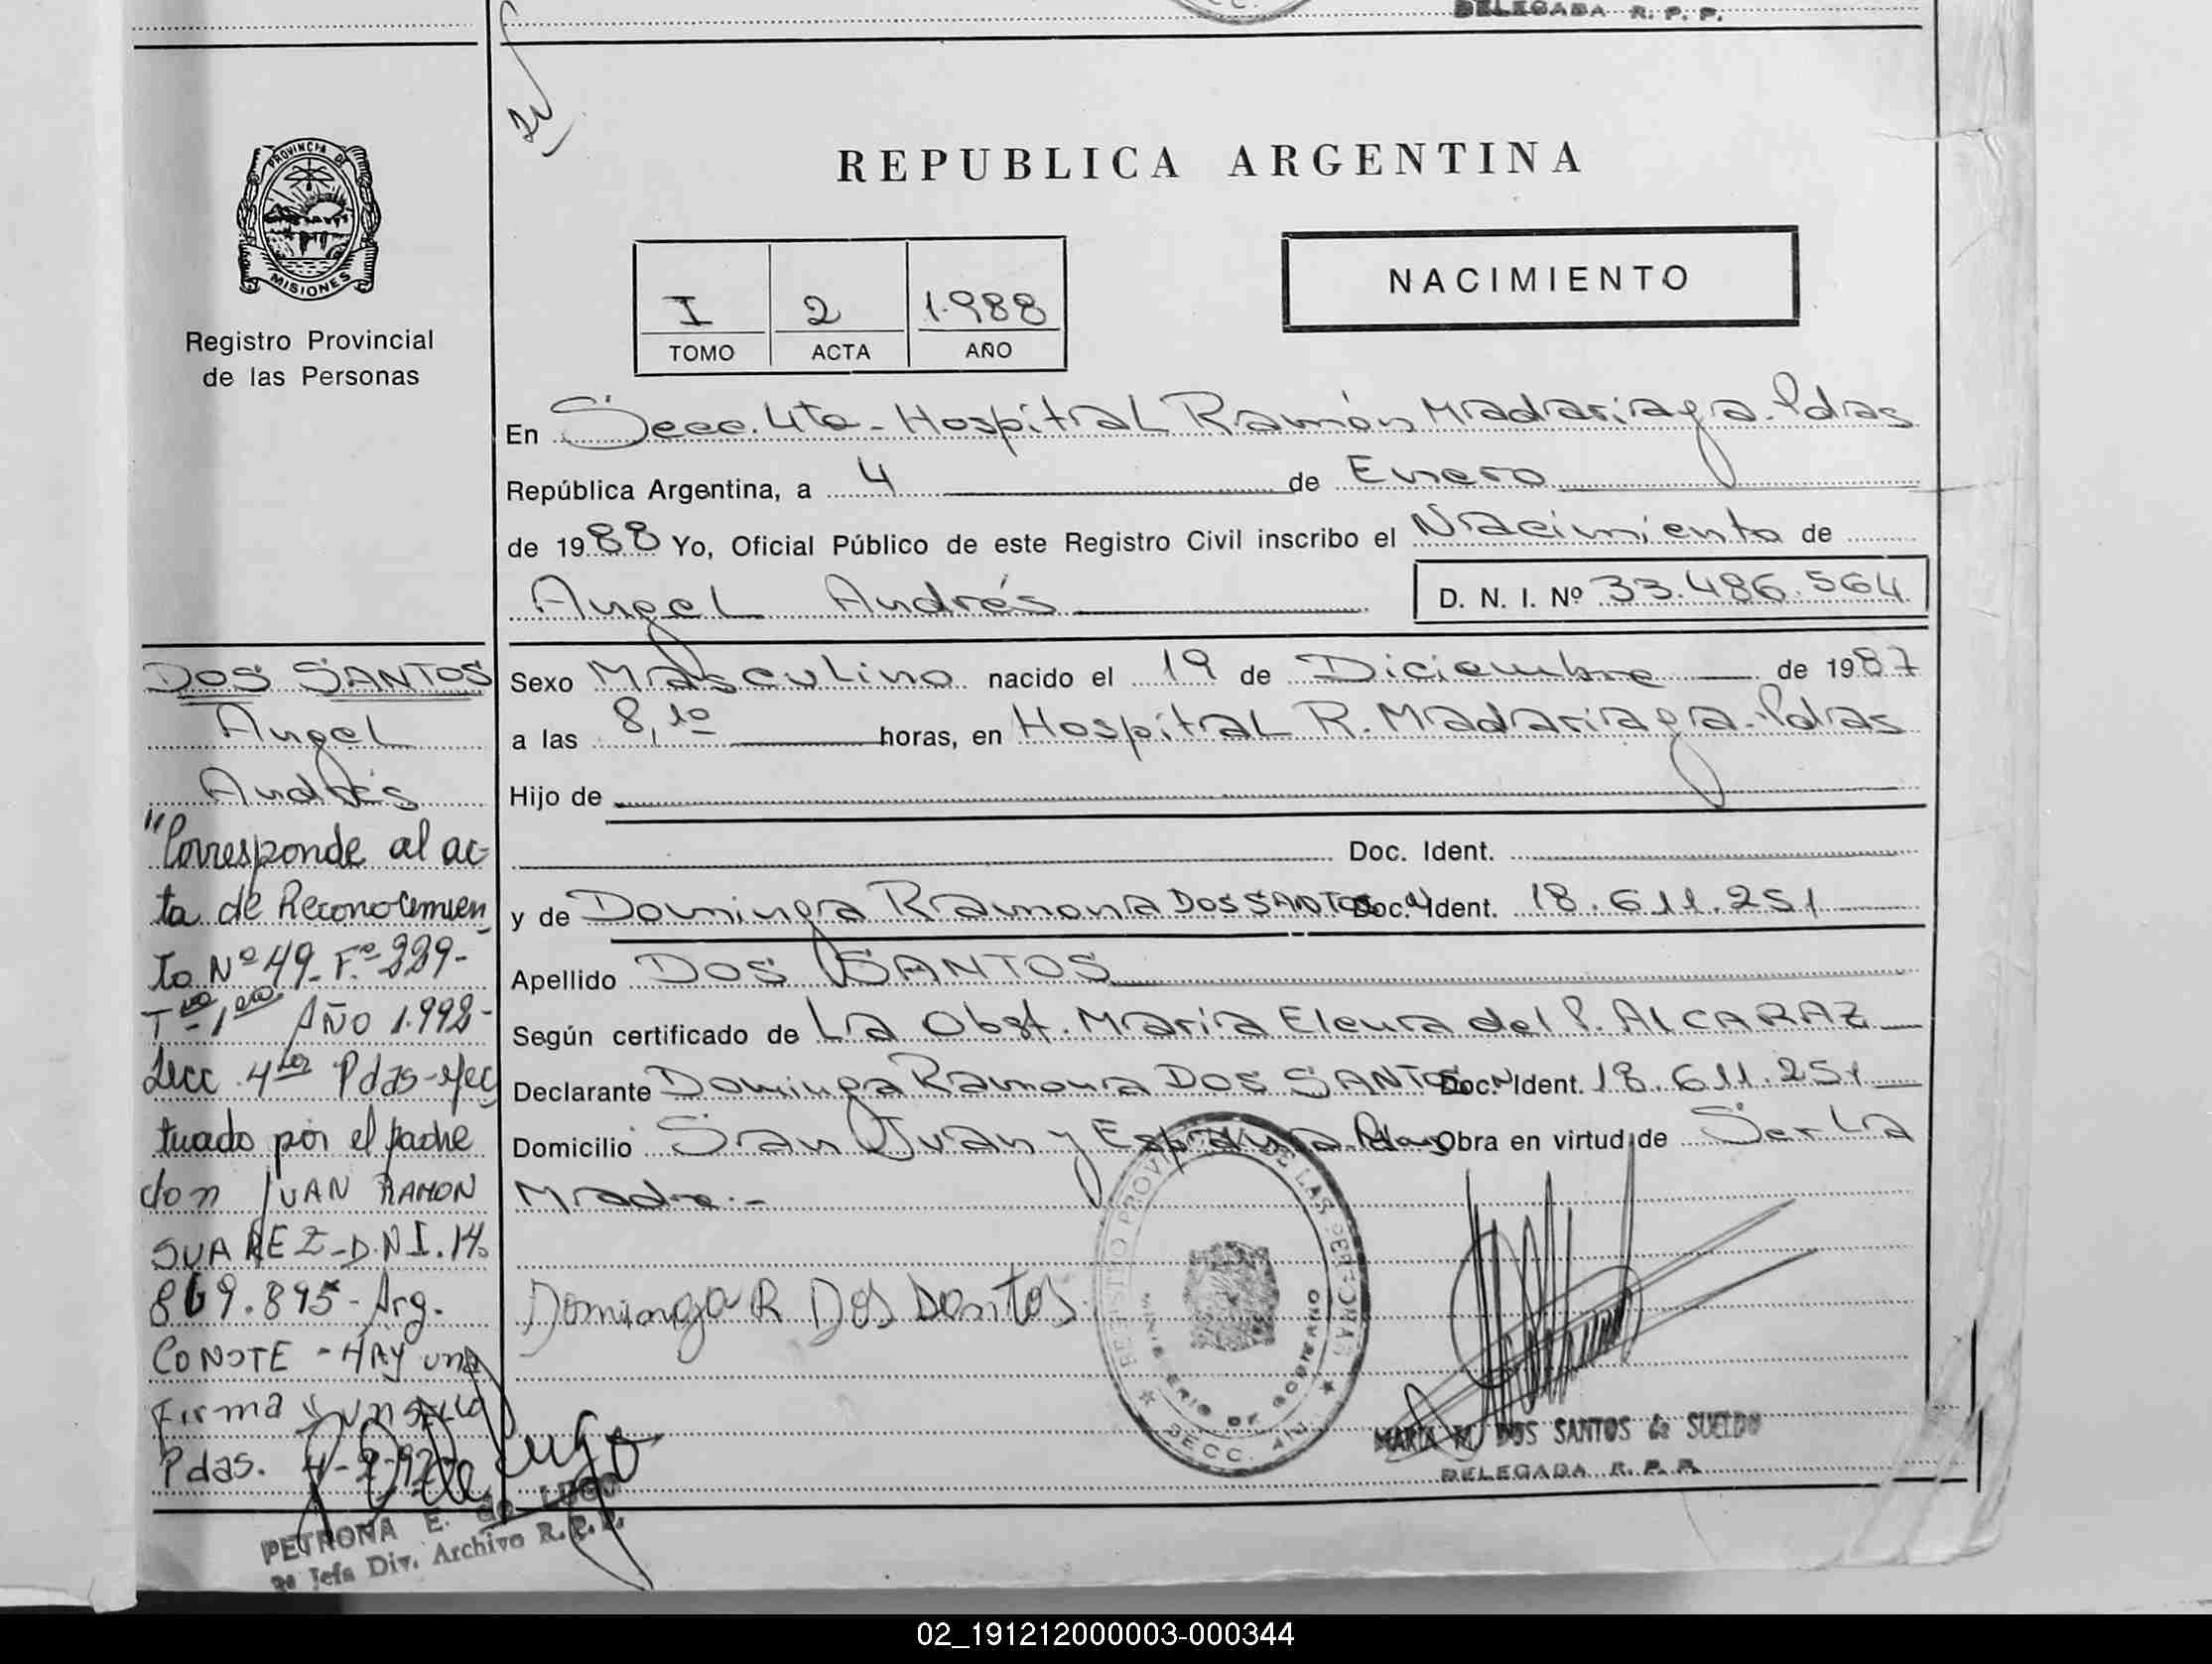 DELEGADA R. P. P.
PROVINCIA DE
MISIONES
Registro Provincial
de las Personas
REPUBLICA ARGENTINA
I 2 1.988
TOMO ACTA AÑO
NACIMIENTO
En Secc. 4ta - Hospital Ramón Madariaga - Pdas
República Argentina, a 4 de Enero
de 1988 Yo, Oficial Público de este Registro Civil inscribo el Nacimiento de
Angel Andrés D. N. I. Nº 33.486.564
Sexo Masculino nacido el 19 de Diciembre de 1987
a las 8,10 horas, en Hospital R. Madariaga - Pdas
Hijo de
Doc. Ident.
y de Dominga Ramona DOS SANTOS Doc. Ident. 18.611.251
Apellido DOS SANTOS
Según certificado de La Obst. María Elena del P. ALCARAZ
Declarante Dominga Ramona DOS SANTOS Doc. Ident. 18.611.251
Domicilio San Juan y España Pdas Obra en virtud de Ser La
Madre.-
Dominga R Dos Santos
REGISTRO PROVINCIAL DE LAS PERSONAS
MINISTERIO DE GOBIERNO
SECC. 4ta
MARIA M. DOS SANTOS de SUELDO
DELEGADA R. P. P.
DOS SANTOS
Angel
Andrés
"Corresponde al ac-
ta de Reconocimien
to Nº 49- Fº 229-
Tº 1ro AÑO 1.992-
Secc. 4ta Pdas-efec
tuado por el padre
don JUAN RAMON
SUAREZ-D.N.I. 14.
869.895- Arg.
CONSTE - HAY una
Firma y un sello
Pdas. 4-2-92
PETRONA E. de LUGO
Jefa Div. Archivo R. P. P.
02_191212000003-000344